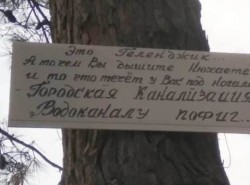 Это Геленджик...
А то чем Вы дышите Нюхаете
и то что течёт у Вас под ногами
Городская Канализация
Водоканалу пофиг...